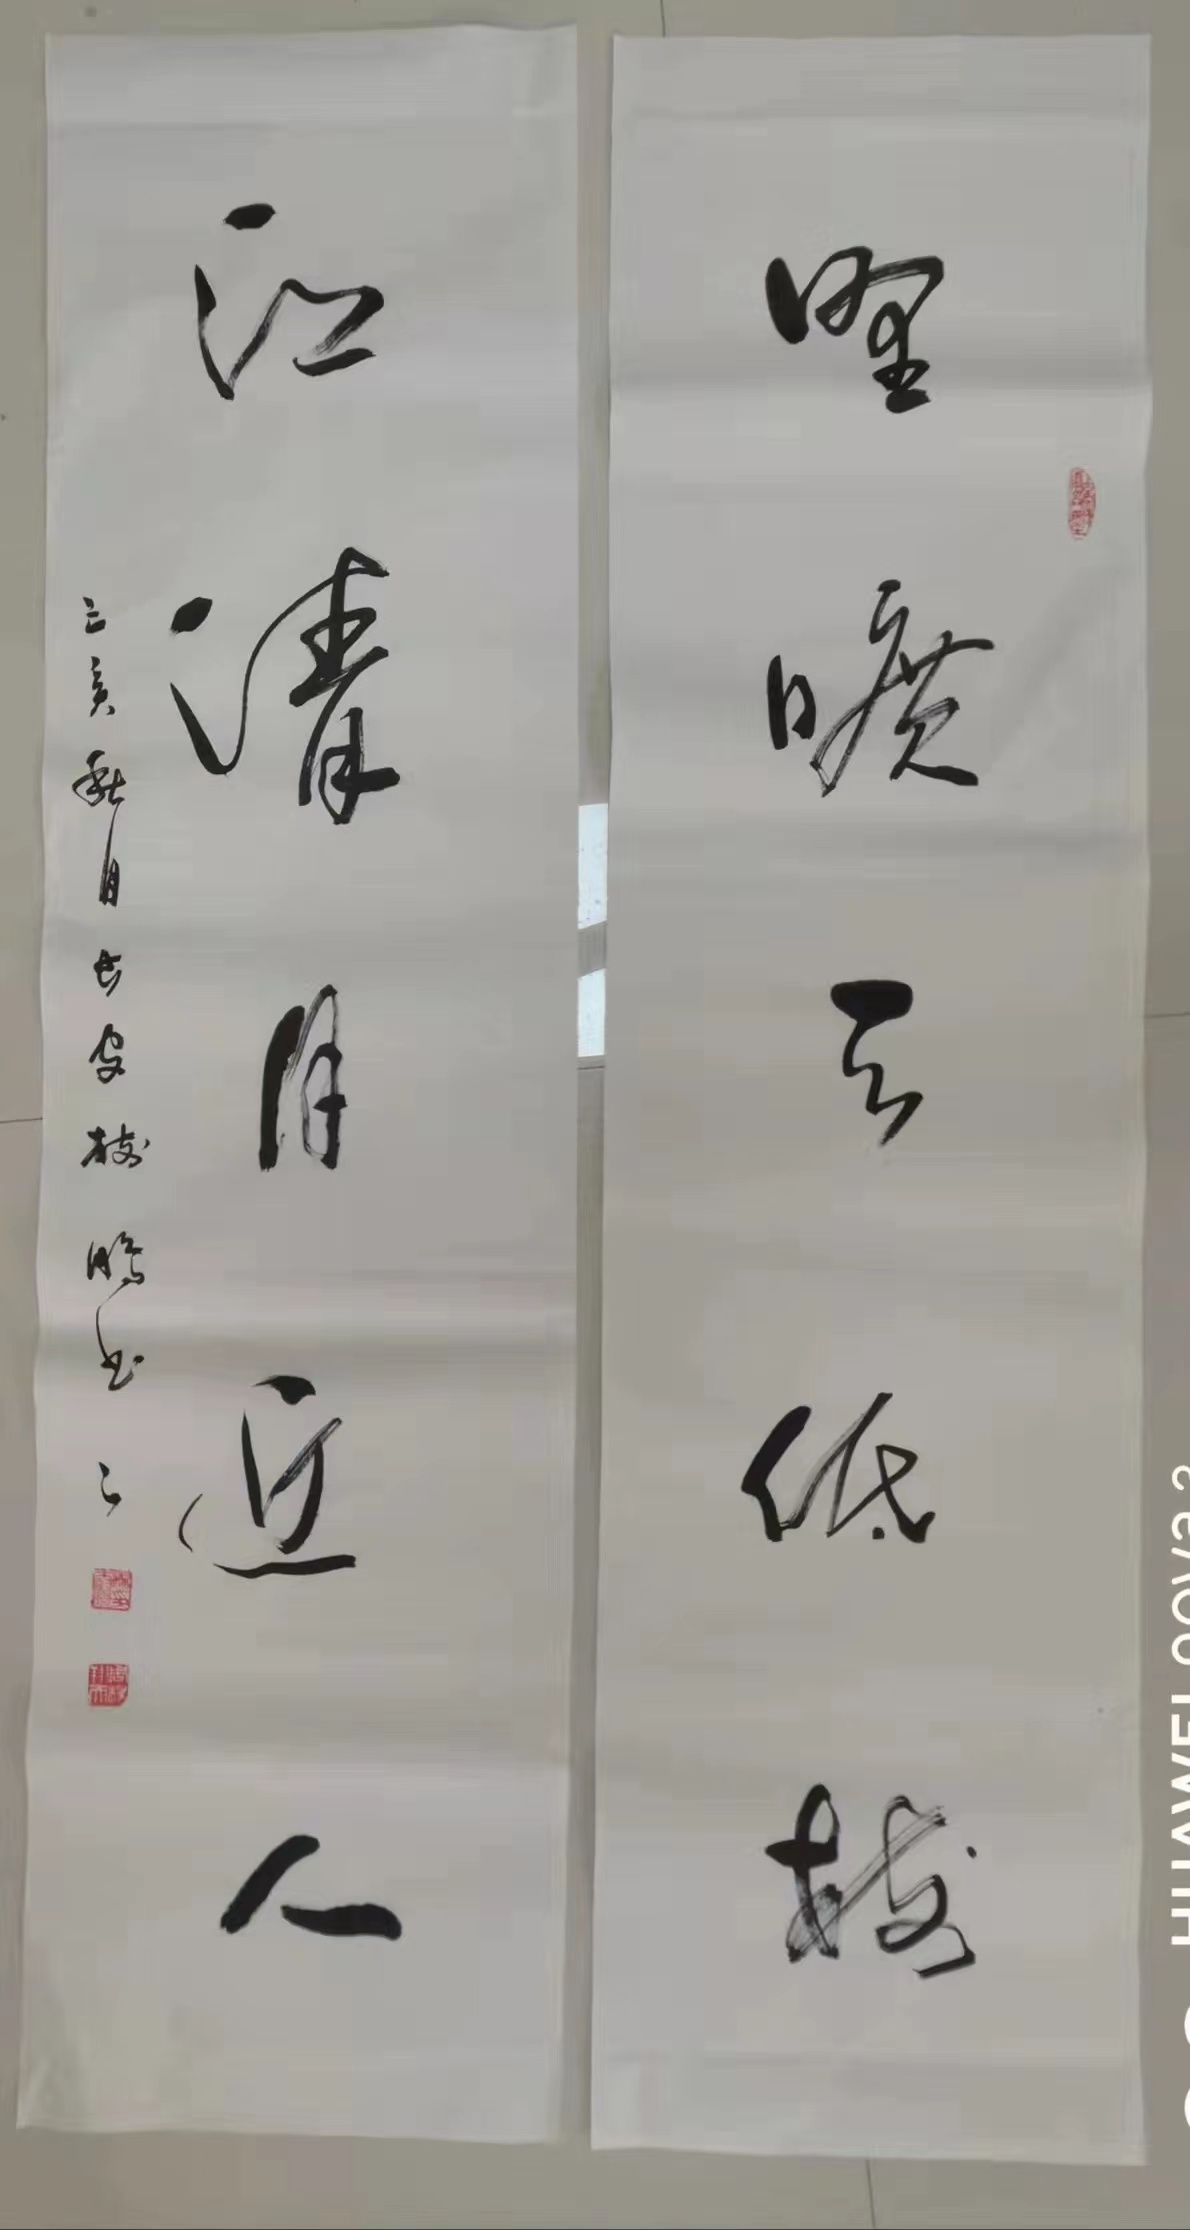 野曠天低樹
江清月近人
己亥秋月長安樹鵬書之
HUAWEI nova 3